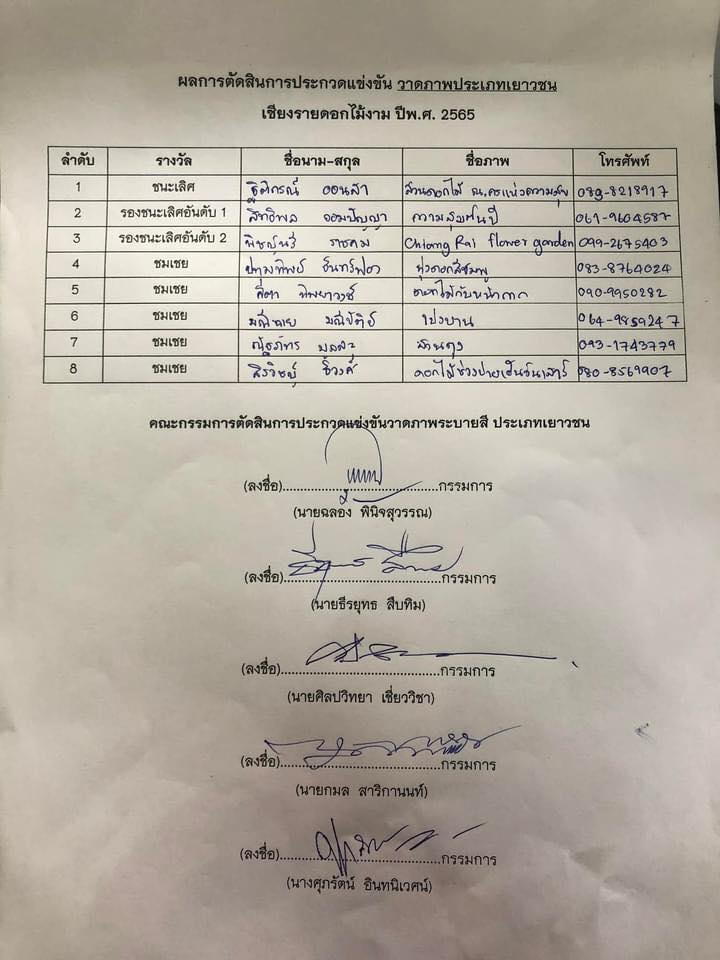 ผลการตัดสินการประกวดแข่งขัน วาดภาพประเภทเยาวชน
เชียงรายดอกไม้งาม ปีพ.ศ. 2565
ลำดับ รางวัล ชื่อนาม-สกุล ชื่อภาพ โทรศัพท์
1 ชนะเลิศ ฐิติกรณ์ สวนดอกไม้ ณ.นครแห่งความสุข 089-8218917
2 รองชนะเลิศอันดับ 1 สิทธิพล จอมปัญญา ความสุขต้นปี 061-9604587
3 รองชนะเลิศอันดับ 2 ราชคม Chiang Rai flower garden 099-2675403
4 ชมเชย ปานทิพย์ ทุ่งดอกสีชมพู 083-8764024
5 ชมเชย ทิพยาวงษ์ ดอกไม้กับหน้ากาก 090-9950282
6 ชมเชย มณีฉาย เบ่งบาน 064-9859247
7 ชมเชย ณัฐภัทร สวนตุง 093-1743779
8 ชมเชย ดอกไม้ช่วงบ่ายเย็นวันเสาร์ 080-8569907
คณะกรรมการตัดสินการประกวดแข่งขันวาดภาพระบายสี ประเภทเยาวชน
(ลงชื่อ)..........................................กรรมการ
(นายฉลอง พินิจสุวรรณ)
(ลงชื่อ)..........................................กรรมการ
(นายธีรยุทธ สืบทิม)
(ลงชื่อ)..........................................กรรมการ
(นายศิลปวิทยา เชี่ยววิชา)
(ลงชื่อ)..........................................กรรมการ
(นายกมล สาริกานนท์)
(ลงชื่อ)..........................................กรรมการ
(นางศุภรัตน์ อินทนิเวศน์)